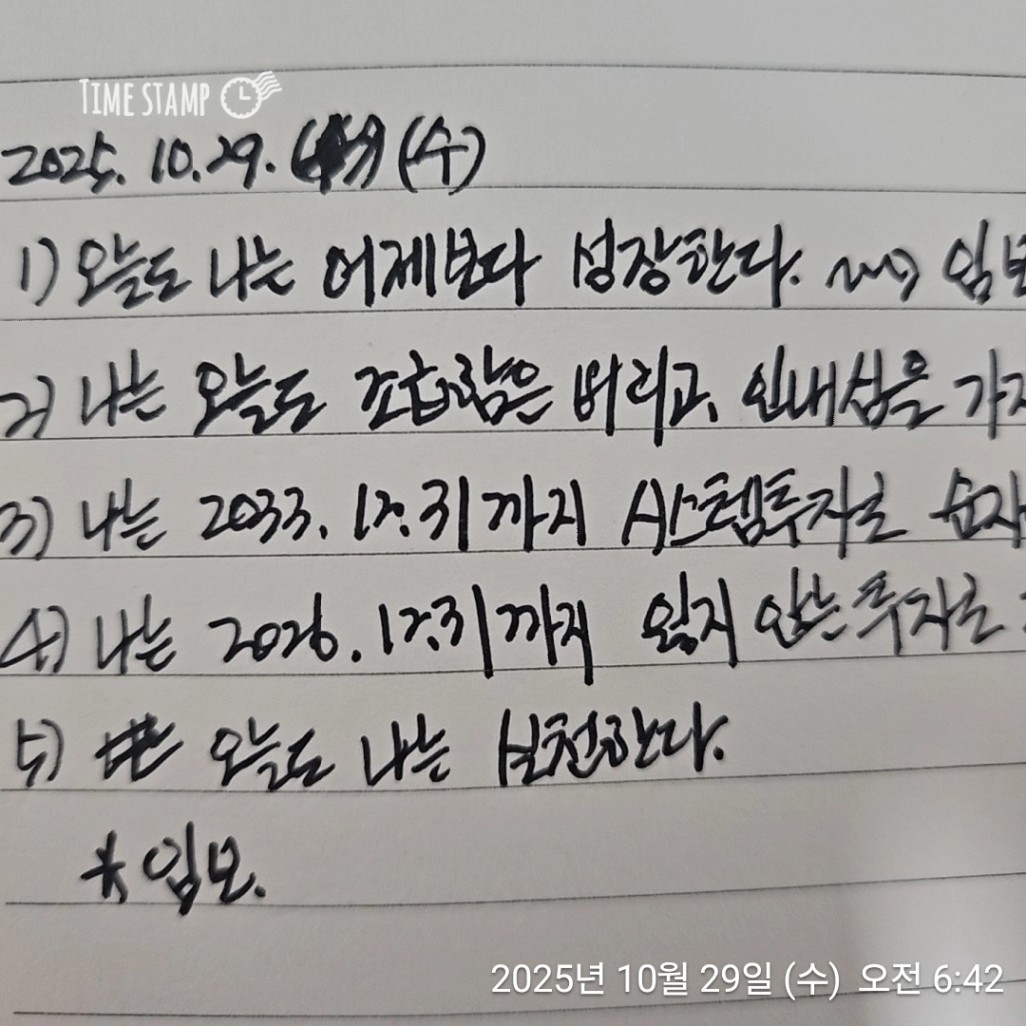 TIME STAMP
2025. 10. 29. (수)
1) 오늘도 나는 어제보다 성장한다. 
2) 나는 오늘도 조급함은 버리고, 인내심을 가지
3) 나는 2033. 12. 31까지 시스템투자로 순자
4) 나는 2026. 12. 31까지 잃지 않는 투자로
5) 오늘도 나는 실천한다.
* 입보.
2025년 10월 29일 (수) 오전 6:42